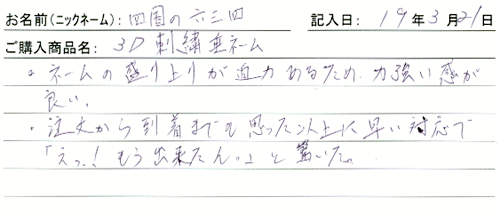 お名前(ニックネーム):四国の六三四 記入日:19年3月21日
ご購入商品名:3D刺繍垂ネーム
・ネームの盛り上りが迫力あるため、力強い感が
良い。
・注文から到着までも思った以上に早い対応で
「えっ!もう出来たん。」と驚いた。